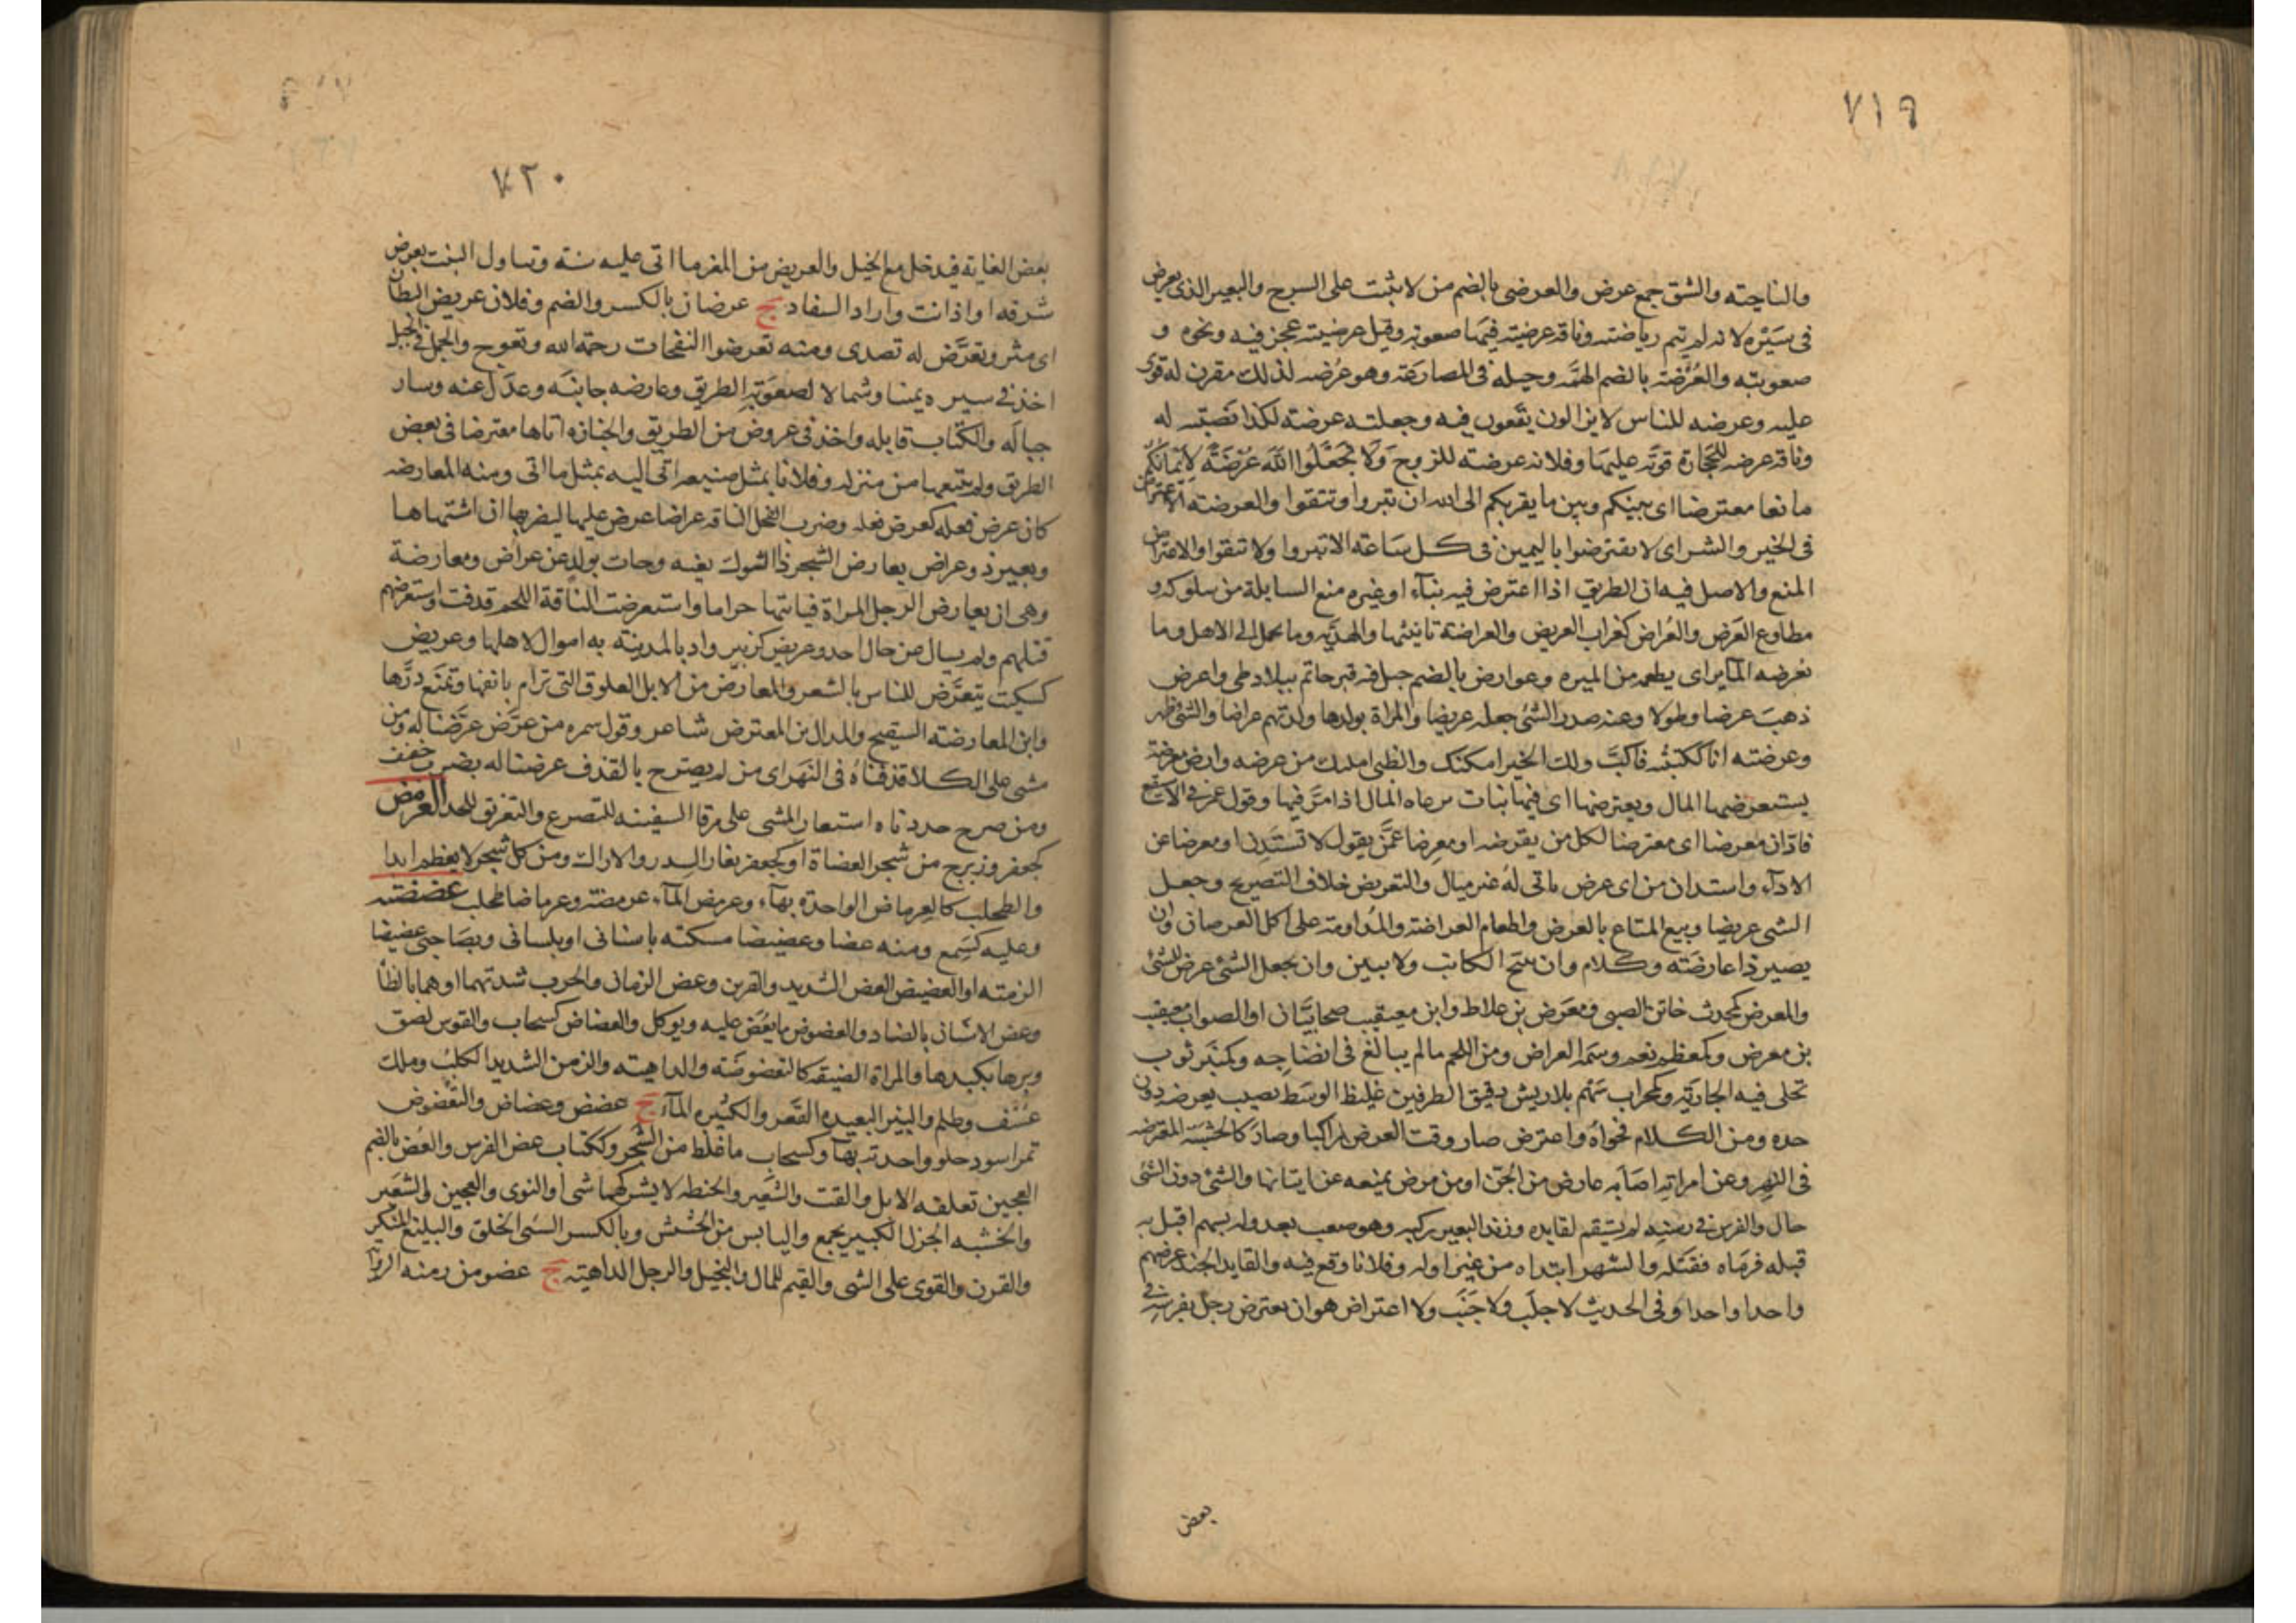 ٧١٩
والناحيته والشق جمع عرض والعرضى بالضم من لا يثبت على السرج والبعير الذى يعرض
فى سَيْره لانه لم يتم رياضته وناقه عرضيته فيها صعوبه وقيل عرضيته عجز فيه ونخوه و
صعوبته والعُرْضَة بالضم الهمَّه وحيله فى المصارعَة وهو عُرضه لذلك مقرن له قوى
عليه وعرضه للناس لا يزالون يقَعون فيه وجعلته عرضته لكذا نصبته له
وناقه عرضه للحجارة قوَّيه عليها وفلانه عرضته للزوج وَلَا تَجْعَلُوا اللَّهَ عُرْضَةً لِأَيْمَانِكُمْ
مانعا معترضا اى بينكم وبين ما يقربكم الى الله ان تبروا وتتقوا والعرضته الاعتراض
فى الخير والشر اى لا يعترضوا باليمين فى كل سَاعَته الا تبروا ولا تتقوا والاعتراض
المنع والاصل فيه ان الطريق اذا اعترض فيه بنآء او غيره منع السابلة من سلوكه و
مطاوع العَرض والعُراض كغراب العريض والعراضة تانيثها والهديّه وما يحمل الى الاهل وما
يعرضه المآير اى يطعمه من الميره وعوارض بالضم جبل فيه قبر حاتم ببلاد طى واعرض
ذهبَ عرضا وطولا وعنه صدر الشئ جعله عريضا والمراة بولدها ولدتهم عراضا والشئ ظهر
وعرضته انا ككبَبْتُه فاكبَّ ولك الخير امكنك والظبى امكنك من عرضه وارض معرضة
يستعرضها المال ويعترضها اى فيها نبات يرعاه المال اذا مَرَّ فيها وقول عمر فى الاسيفع
فادّان معرضا اى معترضا لكل من يقرضه او معرِضا عمَّن يقول لا تستَدِن او معرضا عن
الادآء واستدان من اى عرض ياتى لهُ غير مبال والتعريض خلاف التصريح وجعل
الشى عريضا وبيع المتاع بالعَرض واطعام العراضته والمداومته على اكل العرضان وان
يصير ذا عارضته وكلام وان يثبج الكاتب ولا يبين وان يجعل الشئ عرض للشئ
والمعرض كمحدث خاتن الصبى ومعَرض بن علاط وابن معيقيب صحابيَّان او الصواب معيقيب
بن معرض وكمعظم نعم وسَمه العراض ومن اللحم مالم يبالغ فى انضاجه وكمنبَر ثوب
تجلى فيه الجاريَة وكمحراب سَهْم بلا ريش دقيق الطرفين غليظ الوسَط يصيب بعرضه دون
حده ومن الكلام فحواهُ واعترض صار وقت العرض راكبا وصارَ كالخشبَته المعترضه
فى النهر وعن امراته اصَابَه عارض من الجنّ او من مرض يمنعه عن ايتانها والشئ دون الشئ
حال والفرس فى رسَنِه لم يستقم لقايده وزند البعير ركبه وهو صعب بعد وله بسهم اقبل به
قبله فرمَاه فقتله والشهر ابتداه من غير اوله وفلانا وقع فيه والقايد الجند عرضهم
واحدا واحدا وفى الحديث لا جلَبَ ولا جَنَبَ ولا اعتراض هو ان يعترض رجل بفرسه فى
بعض
٧٢٠
بعض الغايته فيدخل مع الخيل والعريض من المعز ما اتى عليه سنته وتناول النبت بعرض
شدقه او اذا نب واراد السفاد ج عرضان بالكسر والضم وفلان عريض البطان
اى مثر وتعرَّض له تصدى ومنه تعرضوا النفحات رحمة الله وتعوج والجمل فى الجبل
اخذ فى سيره يمينا وشمالا لصعوَبَة الطريق وعارضه جانبَه وعدَل عنه وسار
حيالَه والكتاب قابله واخذ فى عروض من الطريق والجنازه اتاها معترضا فى بعض
الطريق ولم يتبعها من منزله وفلانا بمثل صنيعه اتى اليه بمثل ما اتى ومنه المعارضه
كان عرض فعله كعرض فعله وضرب الفحل الناقه عراضا عرض عليها ليضربها ان اشتهاها
وبعير ذو عراض يعارض الشجر ذا الشوك بفيه وجات بولد عن عراض ومعارضة
وهى ان يعارض الرجل المراة فياتيها حراما واستعرضت الناقة اللحم قذفت واستعرضهم
قتلهم ولم يسال عن حال احد وعريض كزبير واد بالمدينته به اموال لاهلها وعريض
كسكيت يتعرَّض للناس بالشعر والمعارض من الابل العلوق التى ترام بانفها وتمنَع درَّها
وابن المعارضته السفيح والمذال بن المعترض شاعر وقول سمره من عرَّض عرَّضنا له ومن
مشى على الكلا قذفناهُ فى النَهر اى من لم يصترح بالقذف عرضنا له بضرب خفيف
ومن صرح حددناه استعار المشى على مرقا السفينه للتصرع والتغريق للحد العرمض
كجعفر وزبرج من شجر العضاة او كجعفر بغار السدر والاراك ومن كل شجر لا يعظم ابدا
والطحلب كالعرماض الواحدة بهآء وعرمض المآء عرمضته وعرماضا طحلب عضضته
وعليه كسَمع ومنه عضا وعضيضا مسكته باسنانى او بلسانى وبصَاحبى عضيضا
الزمته او العضيض العض الشديد والقرين وعض الزمان والحرب شدتهما او هما بالظا
وعض الاسنان بالضاد والعضوض ما يعُض عليه ويوكل والعضاض كسحاب والقوس لصق
وترها بكبدها والمراة الضيقه كالتعضوضَته والداهيته والزمن الشديد الكلب وملك
عَسْف وظلم والبئر البعيده القَعر والكثيره المآء ج عضض وعضاض والتعْضوض
تمر اسود حلو واحدته بهآ وكسحاب ما غلظ من الشجر وككتاب عض الفرس والعُض بالضم
العجين تعلفه الابل والقت والشعير والحنطه لا يشركهما شى او النوى والعجين والشعير
والخشبه الجزل الكبير يجمع واليابس من الحشيش وبالكسر السئ الخلق والبليغ المنكر
والقرن والقوى على الشى والقيم للمال والبخيل والرجل الداهيته ج عضو من رمنه